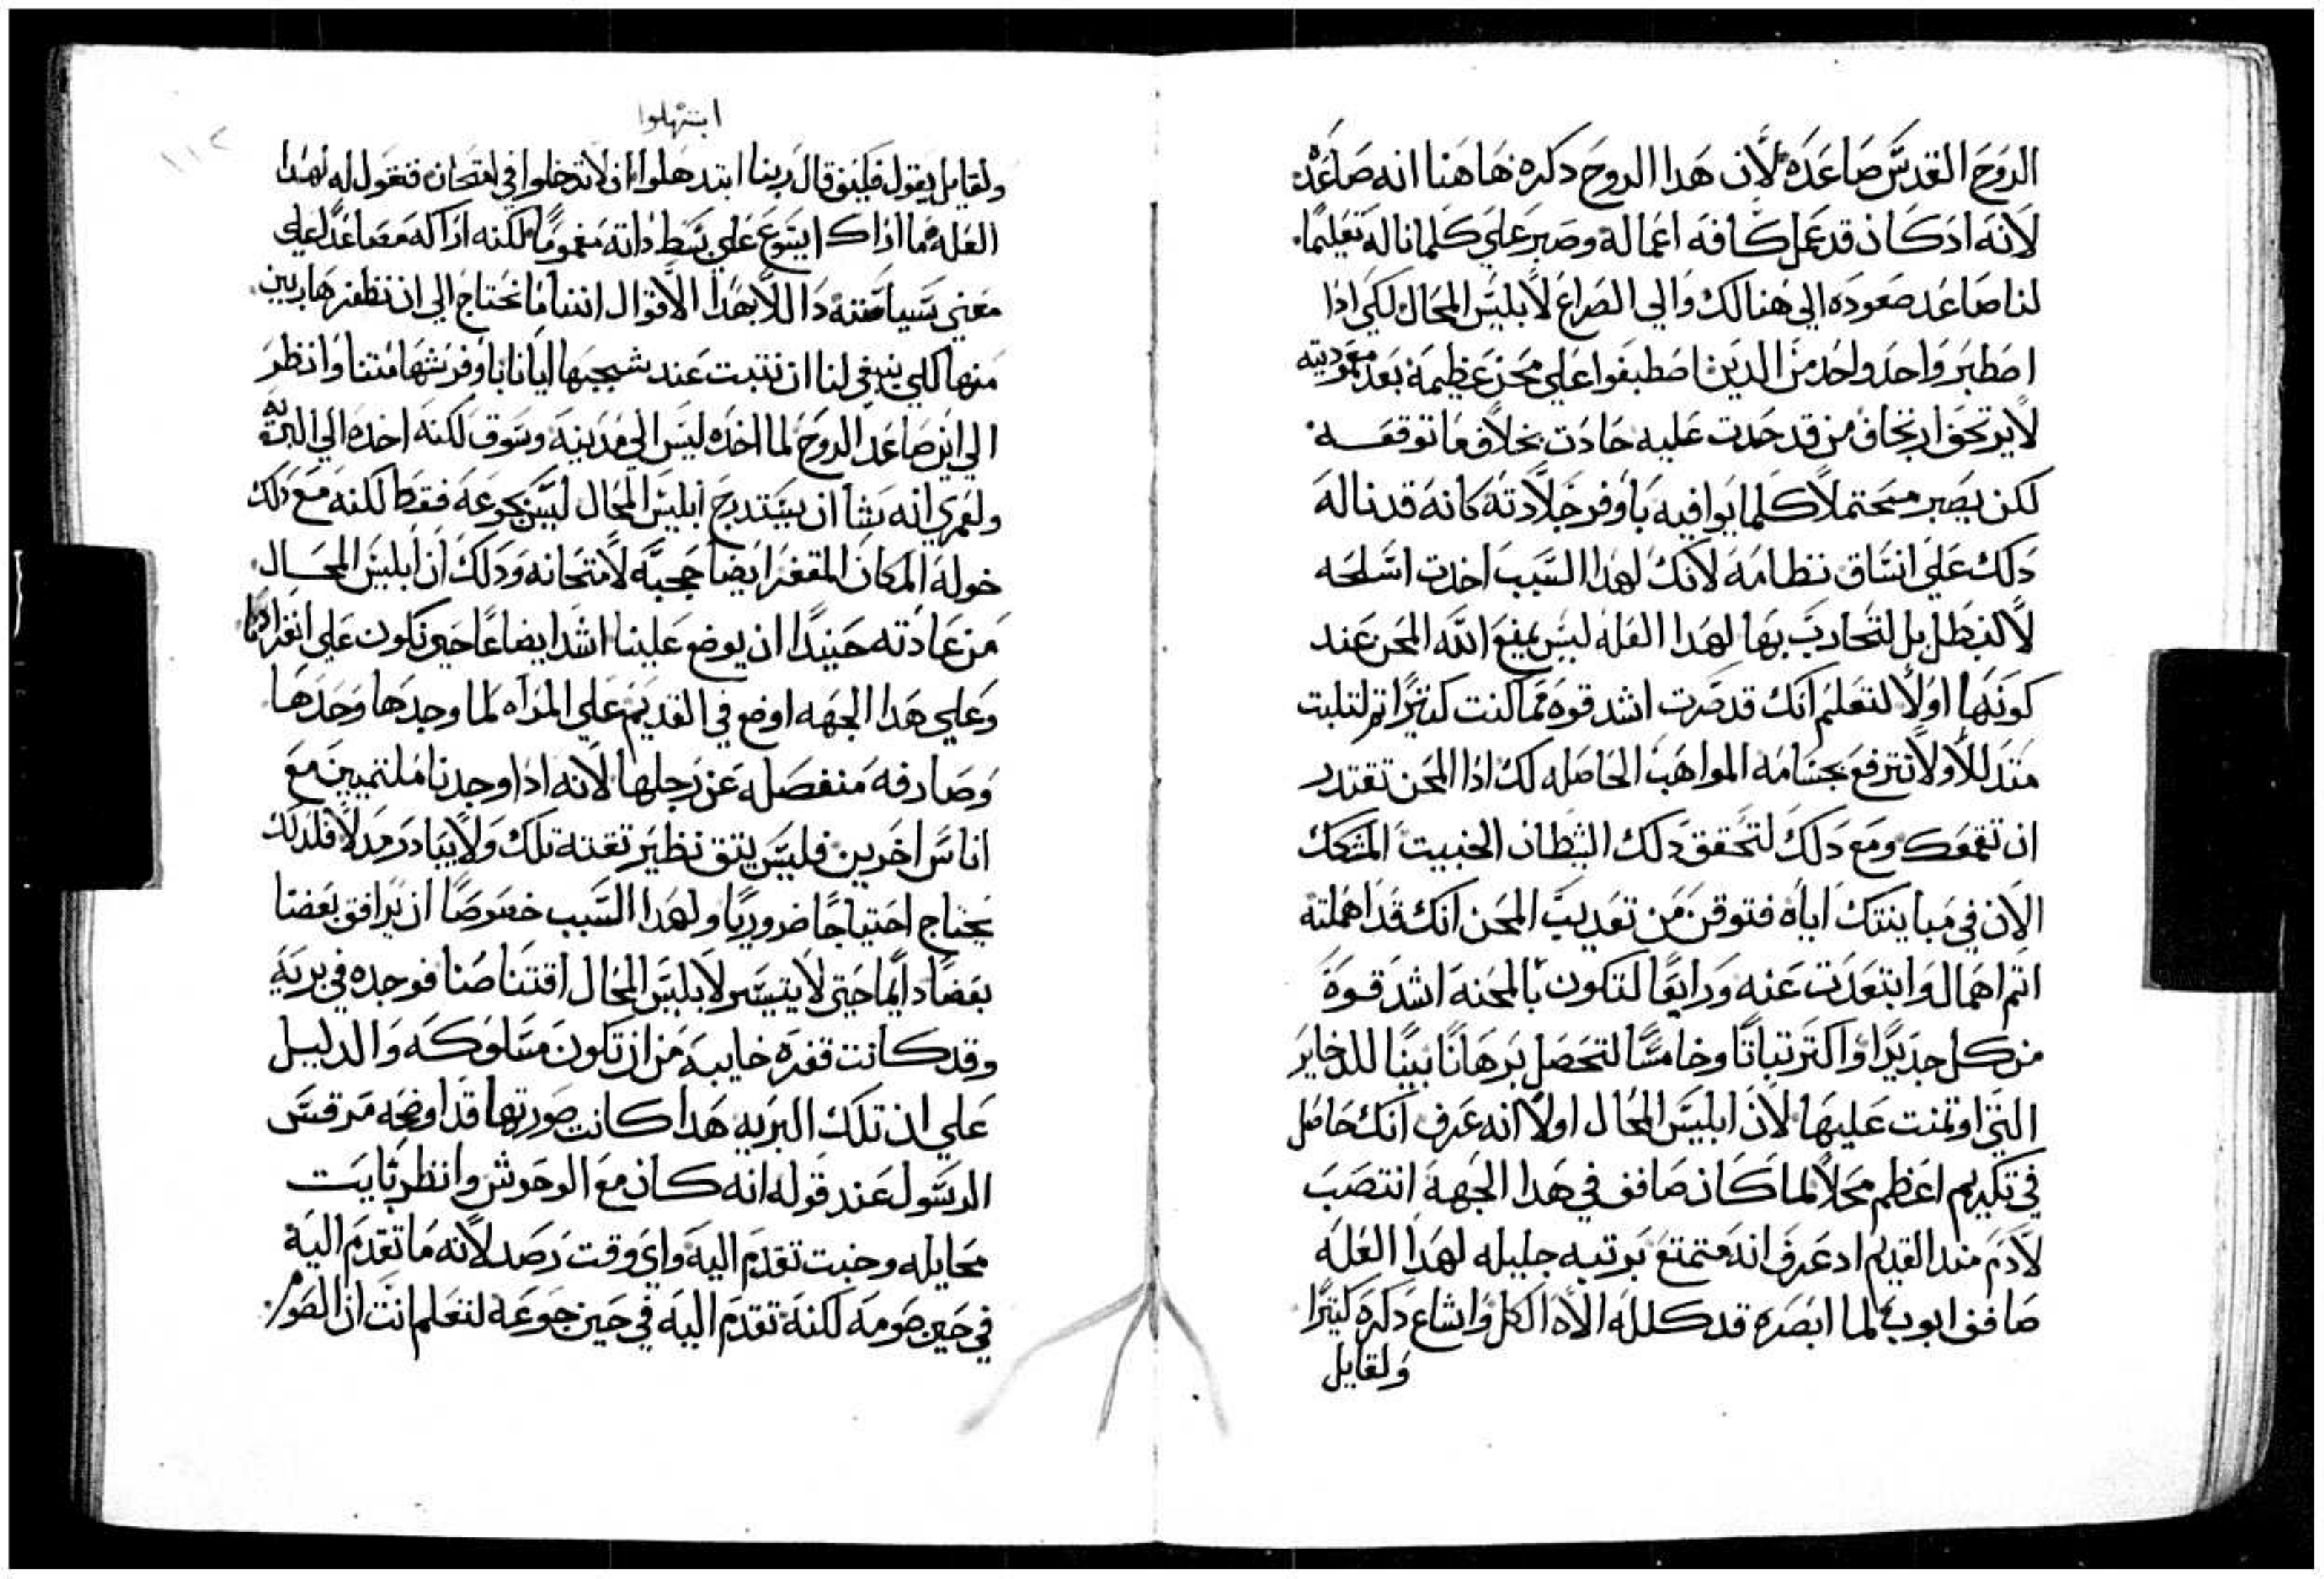 الروح القدس صاعده لان هدا الروح دكره هاهنا انه صاعده
لانه ادكان قد عمل كافه اعماله وصبر علي كلما ناله تعليما
لنا صاعد صعوده الي هنالك والي الصراع لابليس المحال لكي ادا
اصطبر واحد واحد من الدين اصطبغوا علي محن عظيمة بعد معموديته
لا يرتجف ارتجاف من قد حدت عليه حادت بخلاف ما توقعه
لكن يصير محتملا كلما يوافيه باوفر جلادته كانه قد ناله
دلك علي اتساق نظامه لانك لهدا السبب اخدت اسلحه
لا لتبطل بل لتحارب بها لهدا العله ليس يمنع الله المحن عند
كونها اولا لتعلم انك قد صرت اشد قوه مما كنت كتيرا تم لتلبت
متدللا ولا تترفع بجسامه المواهب الحاصله لك ادا المحن تقتدر
ان تقمعك ومع دلك لتحقق دلك الشطان الخبيت المتشكك
الان في مباينتك اياه فتوقن من تعديب المحن انك قد اهملته
اتم اهمالا وابتعدت عنه ورابعا لتكون بالمحنه اشد قوة
من كل جديدا واكتر تباتا وخامسا لتحصل برهانا بينا للدخاير
التي اوتمنت عليها لان ابليس المحال اولا انه عرف انك حاصل
في تكريم اعظم محلا لما كان صافق في هدا الجهة انتصب
لادم مند القديم اد عرف انه متمتع برتبه جليله لهدا العله
صافف ايوب لما ابصره قد كلله الاه الكل واشاع دكره كتيرا
ولقايل
ابتهلوا
ولقايل يقول فكيف قال ربنا ابتدهلوا ان لا تدخلوا في امتحان فنقول له لهدا
العله ما اراك ايسوع علي بسط داته مغموما لكنه اراكه مصاعدا علي
معني سياسته دالا بهدا الاقوال اننا ما نحتاج الي ان نظفر هاربين
منها كلي ينبغي لنا ان نتبت عند شجبها ايانا باوفر شهامتنا وانظر
الي اين صاعد الروح لما اخده ليس الي مدينه وسوق لكنه اخده الي البريه
ولعمري انه يشا ان يستدرج ابليس المحال ليس بجوعه فقط لكنه مع دلك
خوله المكان المقفر ايضا حجه لامتحانه ودلك ان ابليس المحال
من عادته حينيدا ان يوضع علينا اشد ايضاعا حين نكون علي انفرادنا
وعلي هدا الجهه اوضع في القديم علي المراه لما وجدها وحدها
وصادفه منفصله عن رجلها لانه ادا وجدنا ملتميين مع
اناس اخرين فليس يتق نظير تقته تلك ولا يبادر مدلا فلدلك
يحتاج احتياجا ضروريا ولهدا السبب خصوصا ان يرافق بعضنا
بعضا دايما حتي لا يتيسر لابليس المحال اقتناصنا فوجده في بريه
وقد كانت قفره خايبه من ان تكون مسلوكه والدليل
علي ان تلك البريه هدا كانت صورتها قد اوضحه مرقس
الرسول عند قوله انه كان مع الوحوش وانظر بايت
محايله وخبت تقدم اليه واي وقت رصد لانه ما تقدم اليه
في حين صومه لكنه تقدم اليه في حين جوعه لتعلم انت ان الصوم